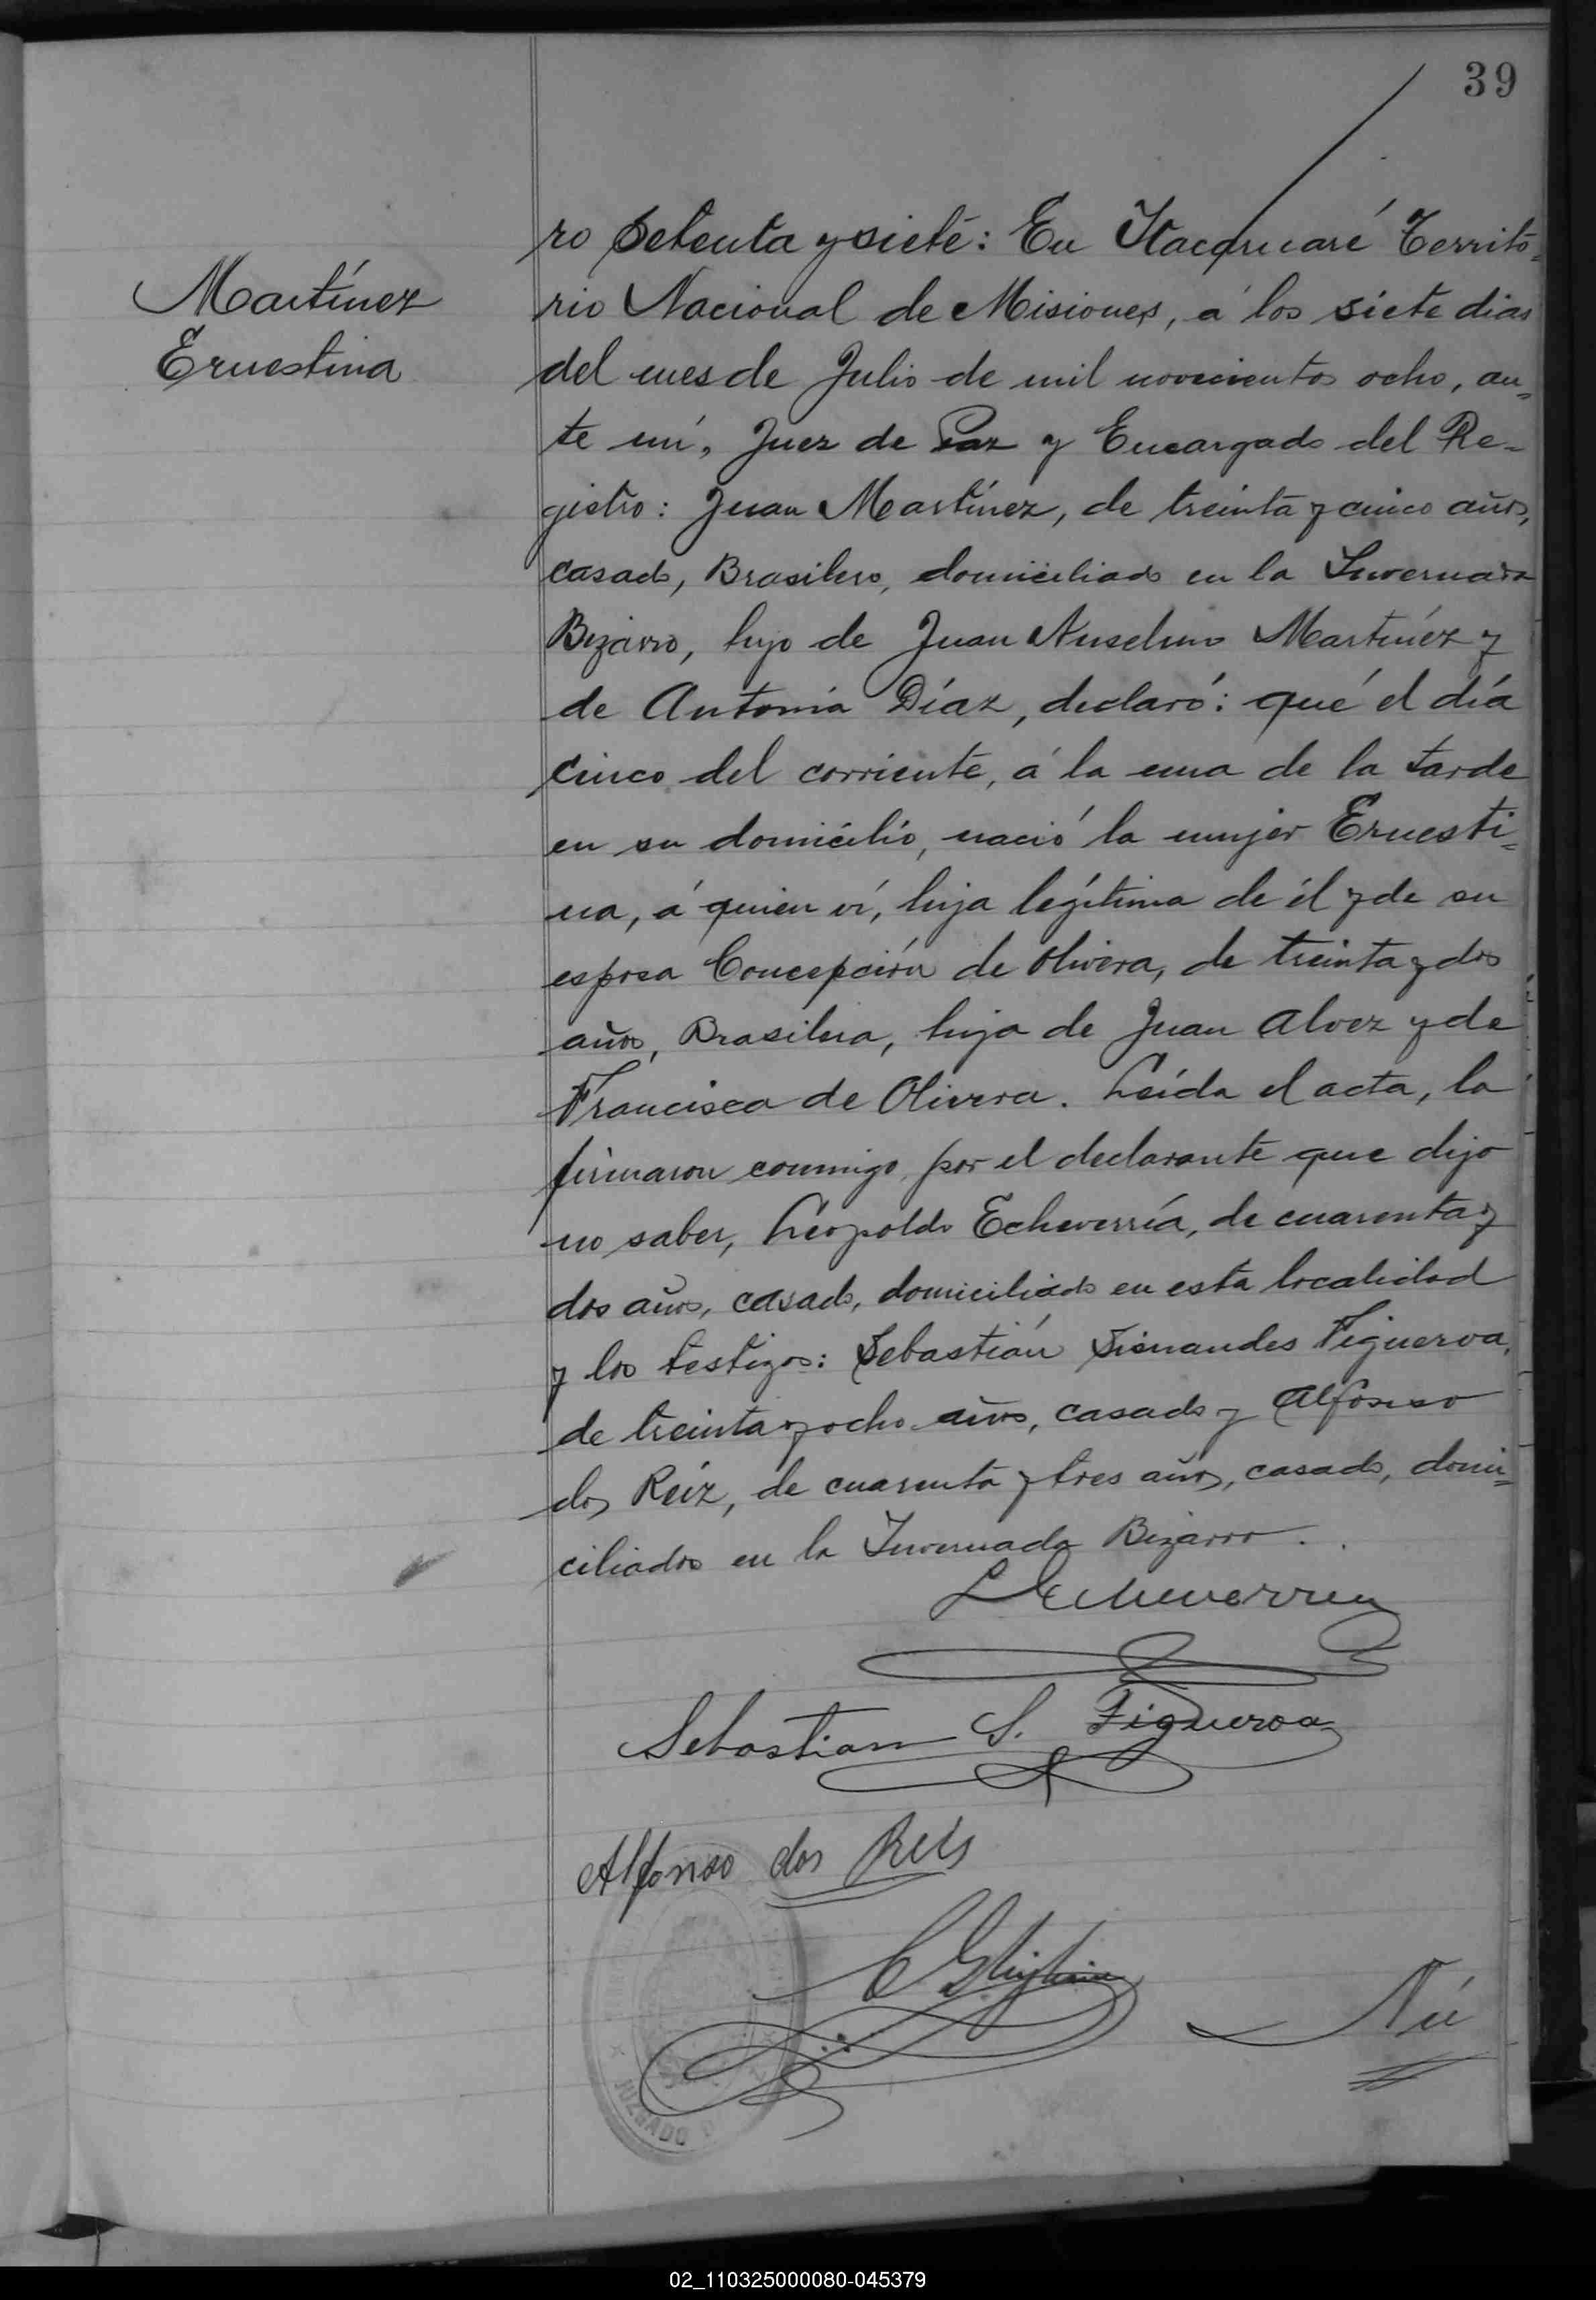 39
Martínez
Ernestina
ro setenta y siete: En Itacaruaré Territo=
rio Nacional de Misiones, á los siete dias
del mes de Julio de mil novecientos ocho, an=
te mí, Juez de Paz y Encargado del Re-
gistro: Juan Martínez, de treinta y cinco años,
casado, Brasilero, domiciliado en la Invernada
Bizarro, hijo de Juan Anselmo Martínez y
de Antonia Díaz, declaró: qué el día
cinco del corriente, á la una de la tarde
en su domicilio, nació la mujer Ernesti=
na, á quien ví, hija legítima de él y de su
esposa Concepción de Olivera, de treinta y dos
años, Brasilera, hija de Juan Alvez y de
Francisca de Olivera. Leída el acta, la
firmaron conmigo, por el declarante que dijo
no saber, Leopoldo Echeverría, de cuarenta y
dos años, casado, domiciliado en esta localidad
y los testigos: Sebastián Sisnandes Figueroa,
de treinta y ocho años, casado y Alfonso
dos Reiz, de cuarenta y tres años, casado, domi=
ciliados en la Invernada Bizarro.
L Echeverria
Sebastian S. Figueroa
Alfonso dos Reis
JUZGADO
Nú
02_110325000080-045379